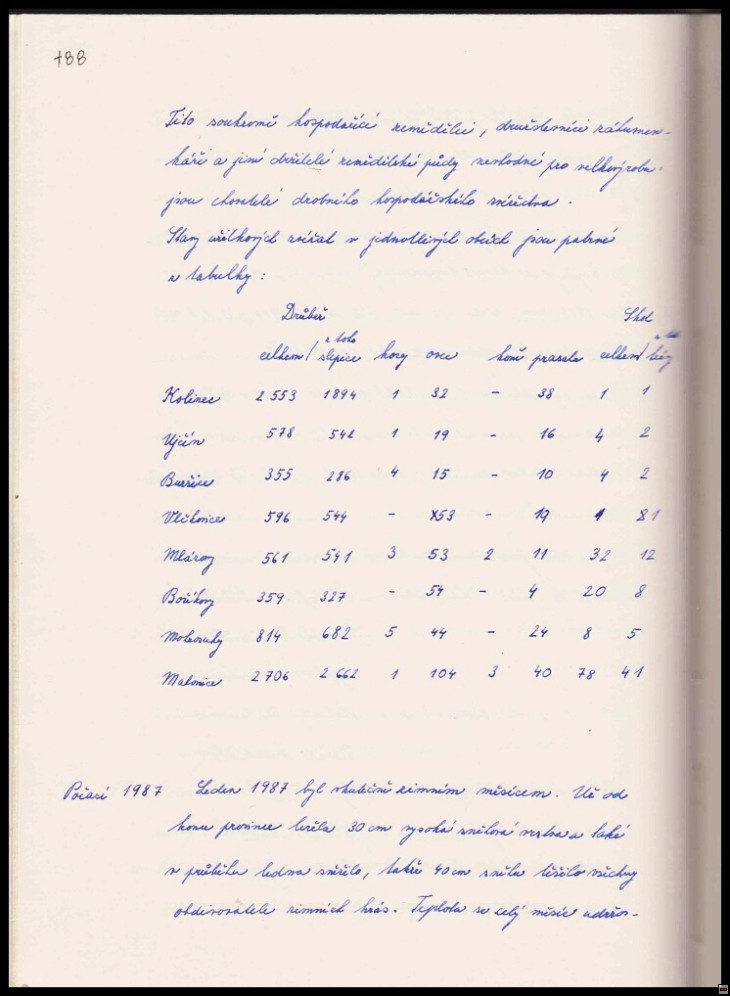 188
Tito soukromě hospodařící zemědělci, družstevníci záhumen-
káři a jiní držitelé zemědělské půdy nevhodné pro velkovýrobu
jsou chovatelé drobného hospodářského zvířectva.
Stavy užitkových zvířat v jednotlivých obcích jsou patrné
z tabulky:
Drůbež Skot
celkem/ z toho slepice kozy ovce koně prasata celkem/ z
Kolinec 2 553 1894 1 32 - 38 1 1
Ujčín 578 542 1 19 - 16 4 2
Buršice 355 286 4 15 - 10 4 2
Vlčkovice 596 544 - 53 - 19 1 81
Mlázovy 561 541 3 53 2 11 32 12
Boříkovy 359 327 - 54 - 4 20 8
Mokrosuky 814 682 5 44 - 24 8 5
Malonice 2 706 2 662 1 104 3 40 78 41
Počasí 1987 Leden 1987 byl skutečně zimním měsícem. Už od
konce prosince ležela 30 cm vysoká sněhová vrstva a také
v průběhu ledna sněžilo, takže 40 cm sněhu těšilo všechny
obdivovatele zimních krás. Teplota se celý měsíc udržo-